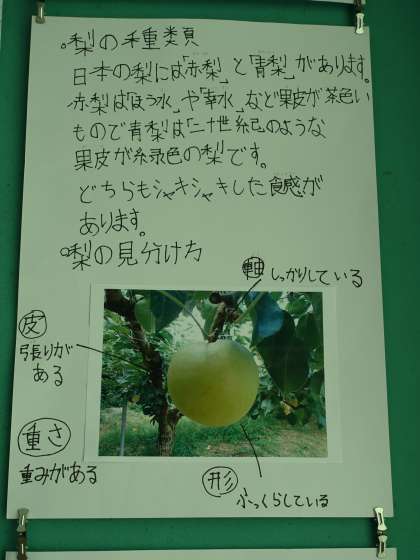 ○梨の種類
日本の梨には「赤梨」と「青梨」があります。
赤梨は「ほう水」や「幸水」など果皮が茶色い
もので青梨は「二十世紀のような
果皮が緑色の梨です。
どちらもシャキシャキした食感が
あります。
○梨の見分け方
軸 しっかりしている
皮
張りが
ある
重さ
重みがある
形
ふっくらしている